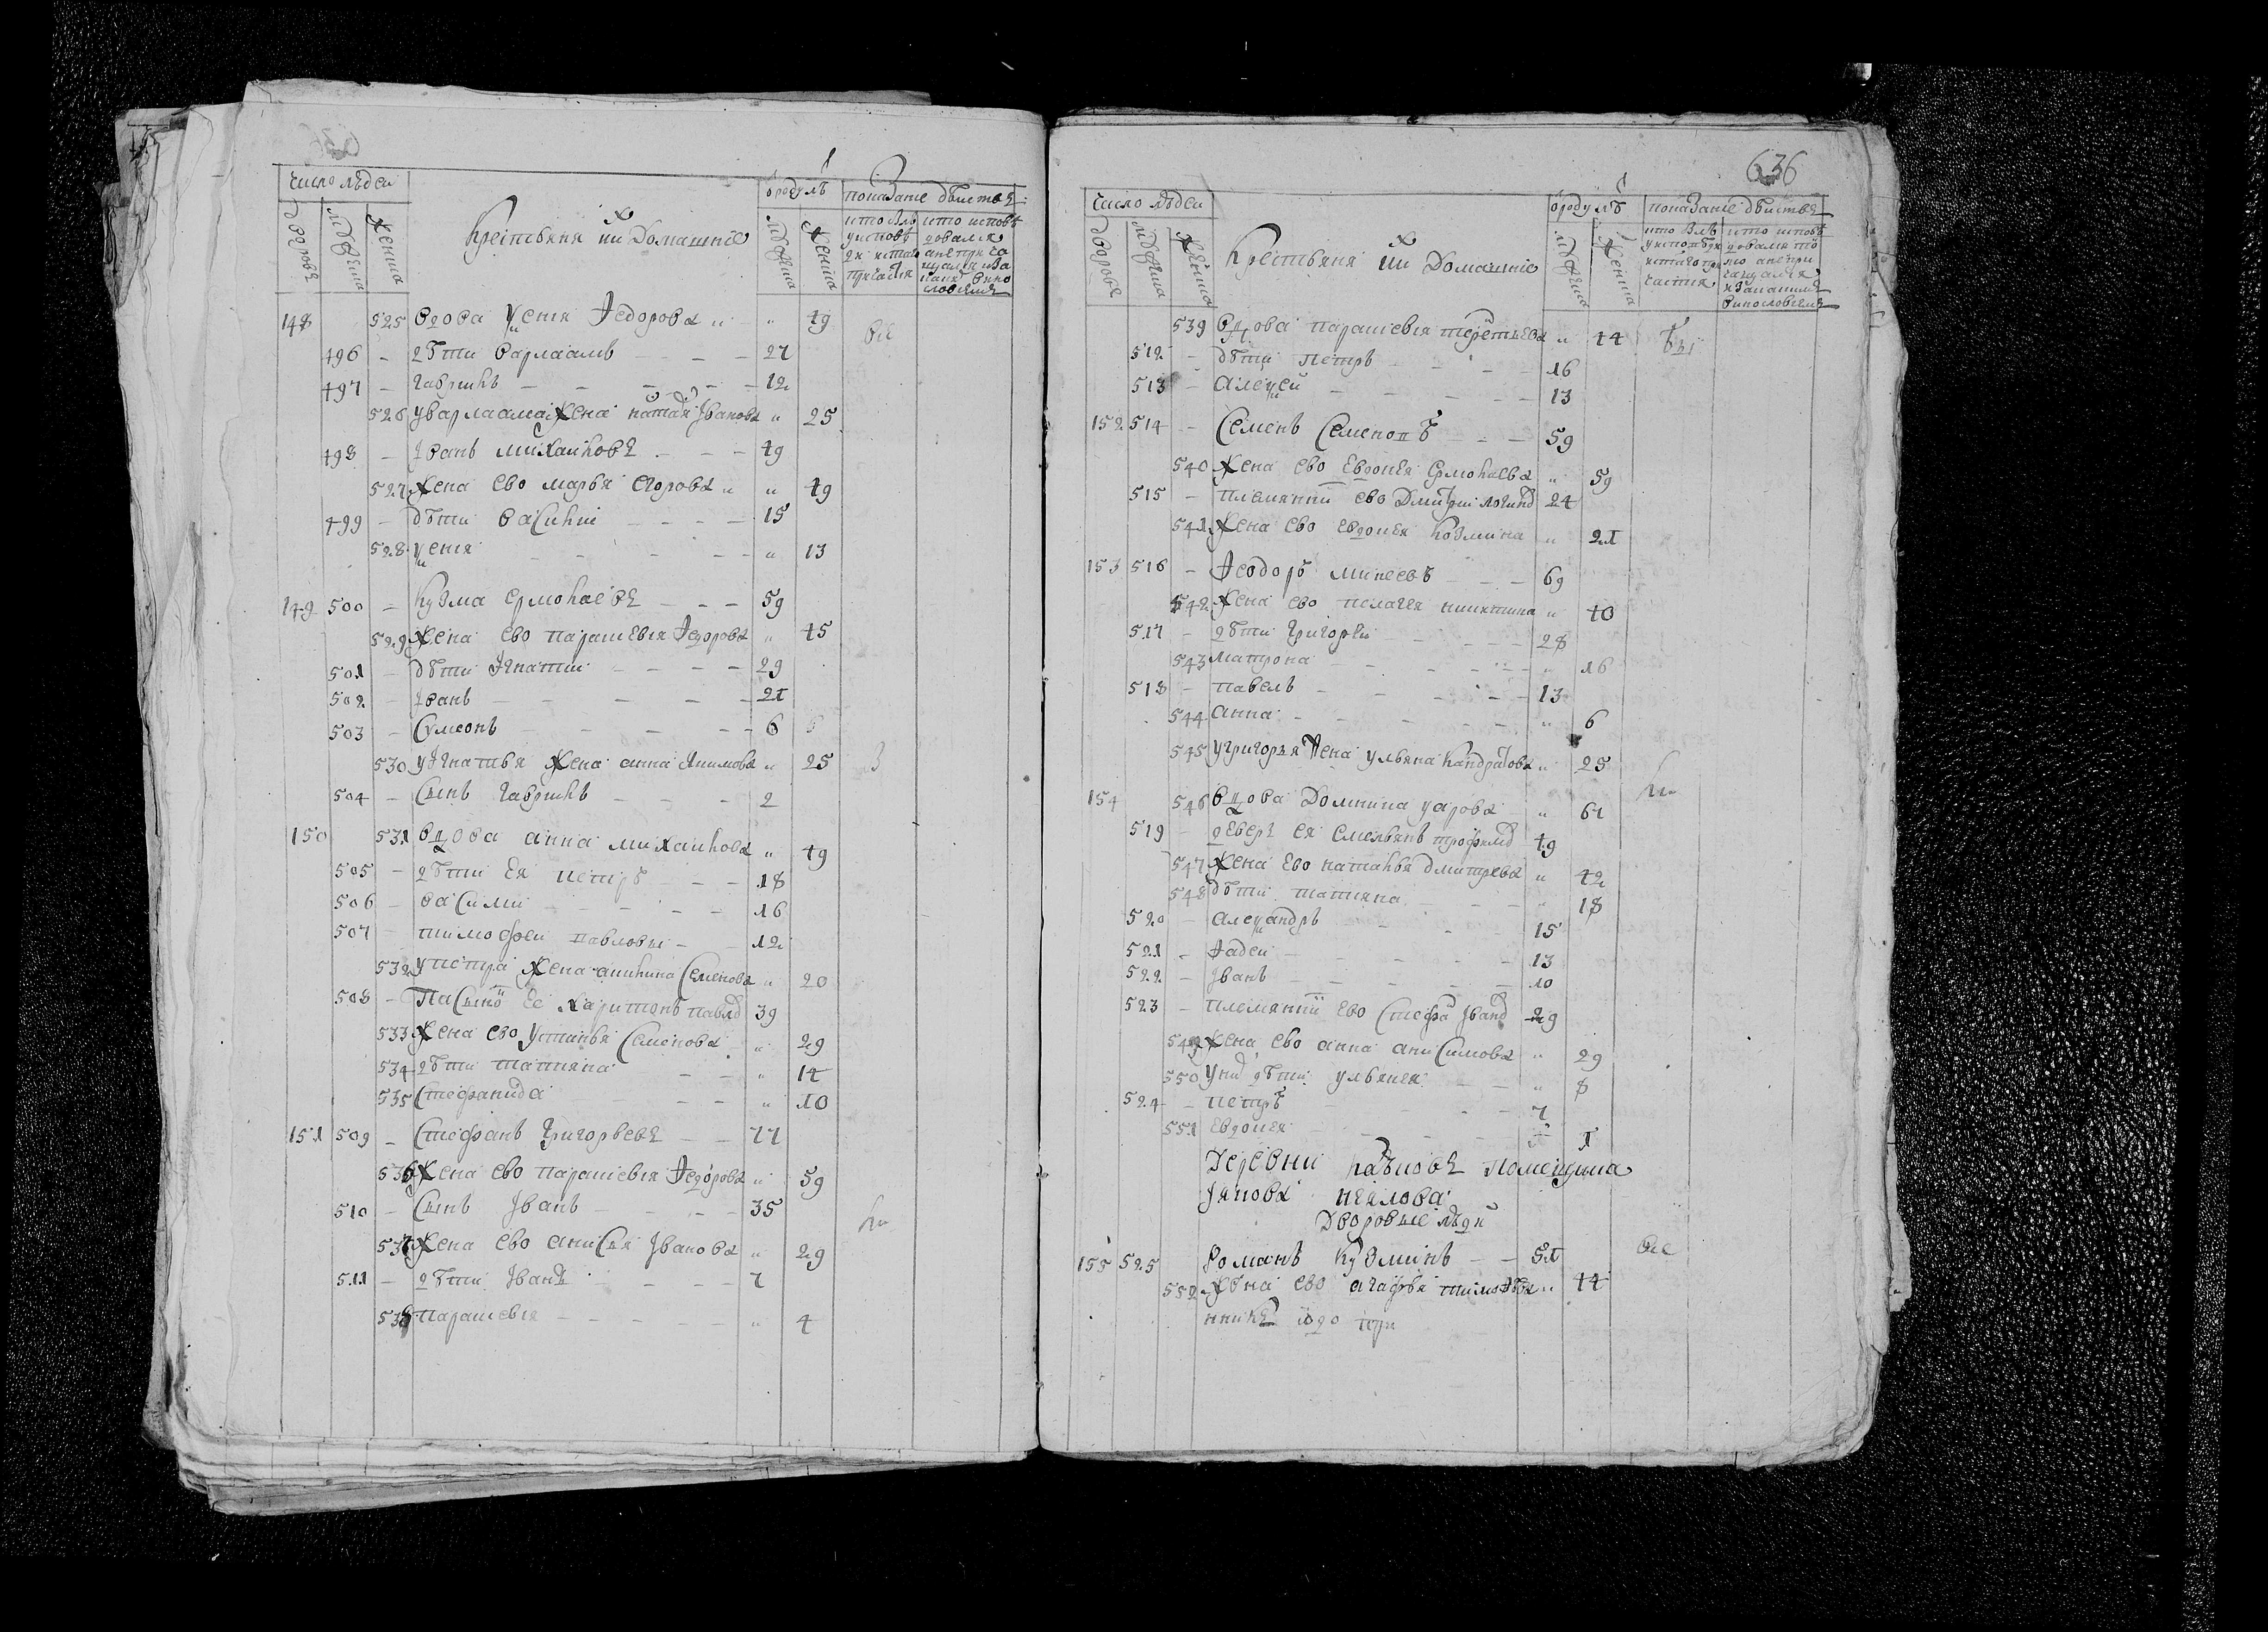 число людеи
Крестьяня и ихъ Домашнїе
ѿ роду имъ
показанїе дѣиства
дворовъ
мужеска
женска
мужеска
женска
148 525 вдова Ѯенїя Ѳедорова " 49
496 - дѣти варлаамъ - - - 27
497 - гаврилъ - - - 12
526 у варлаама жена наталья Іванова " 25
498 - Іванъ михаиловъ - - - 49
527 жена ево марья егорова " 49
499 - дѣти василїи - - - 15
528 Ѯенїя - - - " 13
149 500 - кузма ермолаевъ - - - 59
529 жена ево параскевїя Ѳедорова " 45
501 - дѣти Игнатїи - - - 29
502 - Іванъ - - - 21
503 - Сѵмеонъ - - - 6
530 у Игнатья жена анна Якимова " 25
504 - сынъ гаврилъ - - - 2
150 531 вдова анна михаилова " 49
505 - дѣти ея петръ - - - 18
506 - васили - - - 16
507 - тимофеи павловы - - 12
532 у петра жена акилина Семенова " 20
508 - пасынокъ ее харитонъ павловъ 39
533 жена ево устинья Семенова " 29
534 дѣти татияна - - " 14
535 Стефанида - - - " 10
151 509 - Стефанъ григорьевъ - - 77
536 жена ево параскевїя Ѳедорова " 59
510 - сынъ Іванъ - - - 35
537 жена ево анисья Іванова " 29
511 - дѣти Іванъ - - - 7
538 параскевїя - - - " 4
636
число людеи
Крестьяня и ихъ Домашнїе
ѿ роду имъ
показанїе дѣиства
дворовъ
мужеска
женска
мужеска
женска
539 вдова параскевїя терентьева " 44
512 - дѣти петръ - - - 16
513 - алеѯеи - - - 13
152 514 - Семенъ Семеновъ - - - 59
540 жена ево евдокея ермолаева " 59
515 - племянникъ ево Дмитреи логиновъ 24
541 жена ево евдокея козмина " 21
153 516 - Ѳеодоръ минеевъ - - - 69
542 жена ево пелагея никитина " 40
517 - дѣти григореи - - - 28
543 матрона - - - " 16
518 - павелъ - - - 13
544 анна - - - " 6
545 у григорья жена ульяна кандратова " 25
154 546 вдова Домника уарова " 61
519 - деверь ея емельянъ трофимовъ 49
547 жена ево наталья дмитрева " 42
548 дѣти татияна - - - " 18
520 - алеѯандръ - - - 15
521 - Ѳадеи - - - 13
522 - Іванъ - - - 10
523 - племянникъ ево Стефанъ Івановъ 29
549 жена ево анна анисимова " 29
550 у нихъ дѣти ульянея - - " 8
524 - петръ - - - 7
551 евдокея - - - " 1
Деревни помещика
Іякова неялова
Дворовые люди
155 525 Романъ кузминъ - - 51
552 жена ево агафья тимофѣева " 44